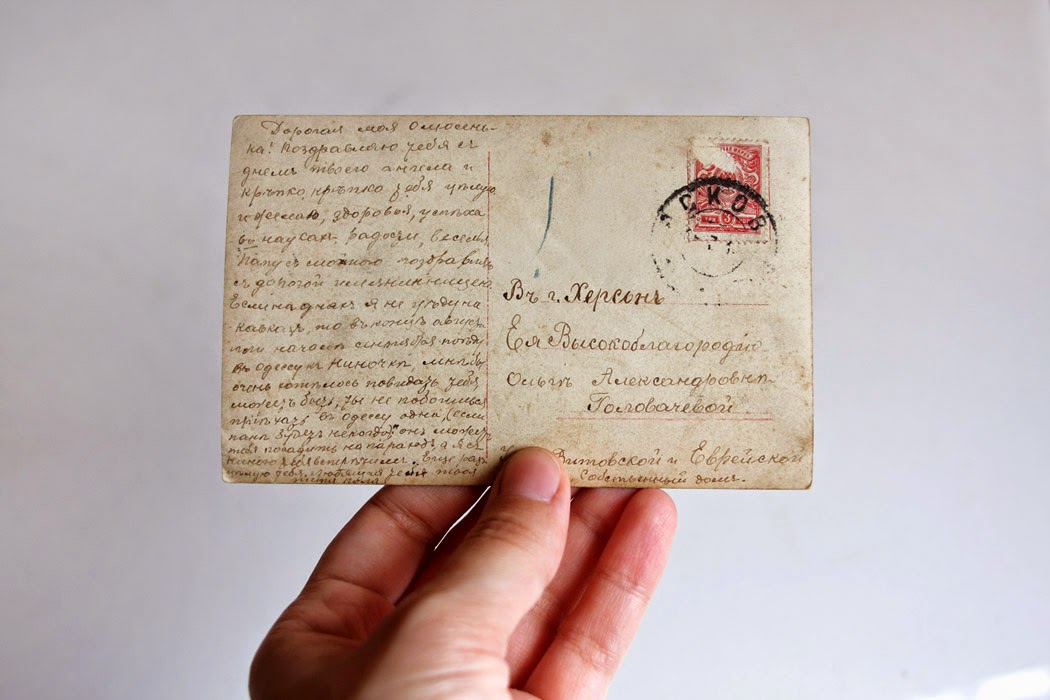 Дорогая моя Олюсень-
ка! Поздравляю тебя съ
днемъ твоего ангела и
крѣпко, крѣпко тебя цѣлую
и желаю, здоровья, успѣха
въ наукахъ, радости, веселья
Папу съ можно поздравить
съ дорогой имянинницею
Если на дняхъ я не уѣду на
Кавказъ, то въ концѣ авгус-
или началѣ сентября поѣду
въ Одессу къ Ниночкѣ, мнѣ бы
очень хотѣлось повидать тебя
можетъ быть, ты не побоишься
пріѣхать въ Одессу одна, (если
папѣ будетъ некогда) онъ можетъ
тебя посадить на пароходъ, а я съ
Ниною тебя встрѣтимъ. Еще раз
цѣлую тебя, любящая тебя твоя
тетя
ПСКОВ
3
Въ г. Херсонъ
Ея Высокоблагородію
Ольгѣ Александровнѣ
Головачевой
Витовской и Еврейской
Собственный домъ.